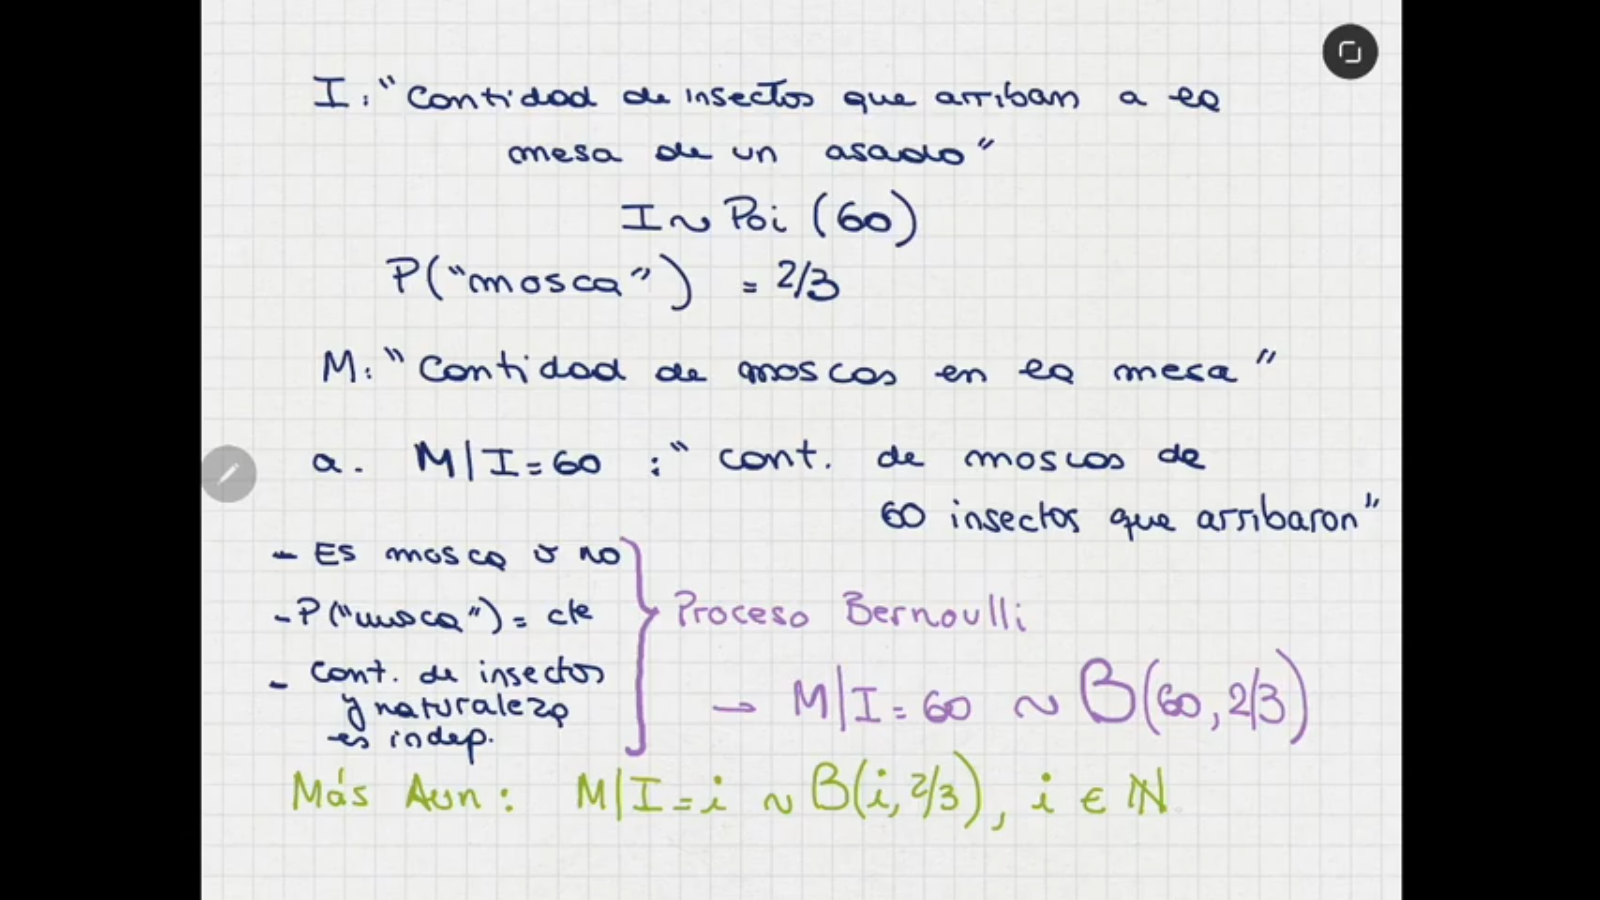 I: "Cantidad de insectos que arriban a la
mesa de un asado"
I ~ Poi (60)
P("mosca") = 2/3
M: "Cantidad de moscas en la mesa"
a. M|I=60 : "cant. de moscas de
60 insectos que arribaron"
- Es mosca o no
- P("mosca") = cte
- Cant. de insectos
y naturaleza
es indep.
Proceso Bernoulli
→ M|I=60 ~ B(60, 2/3)
Más Aun: M|I=i ~ B(i, 2/3), i ∈ ℕ